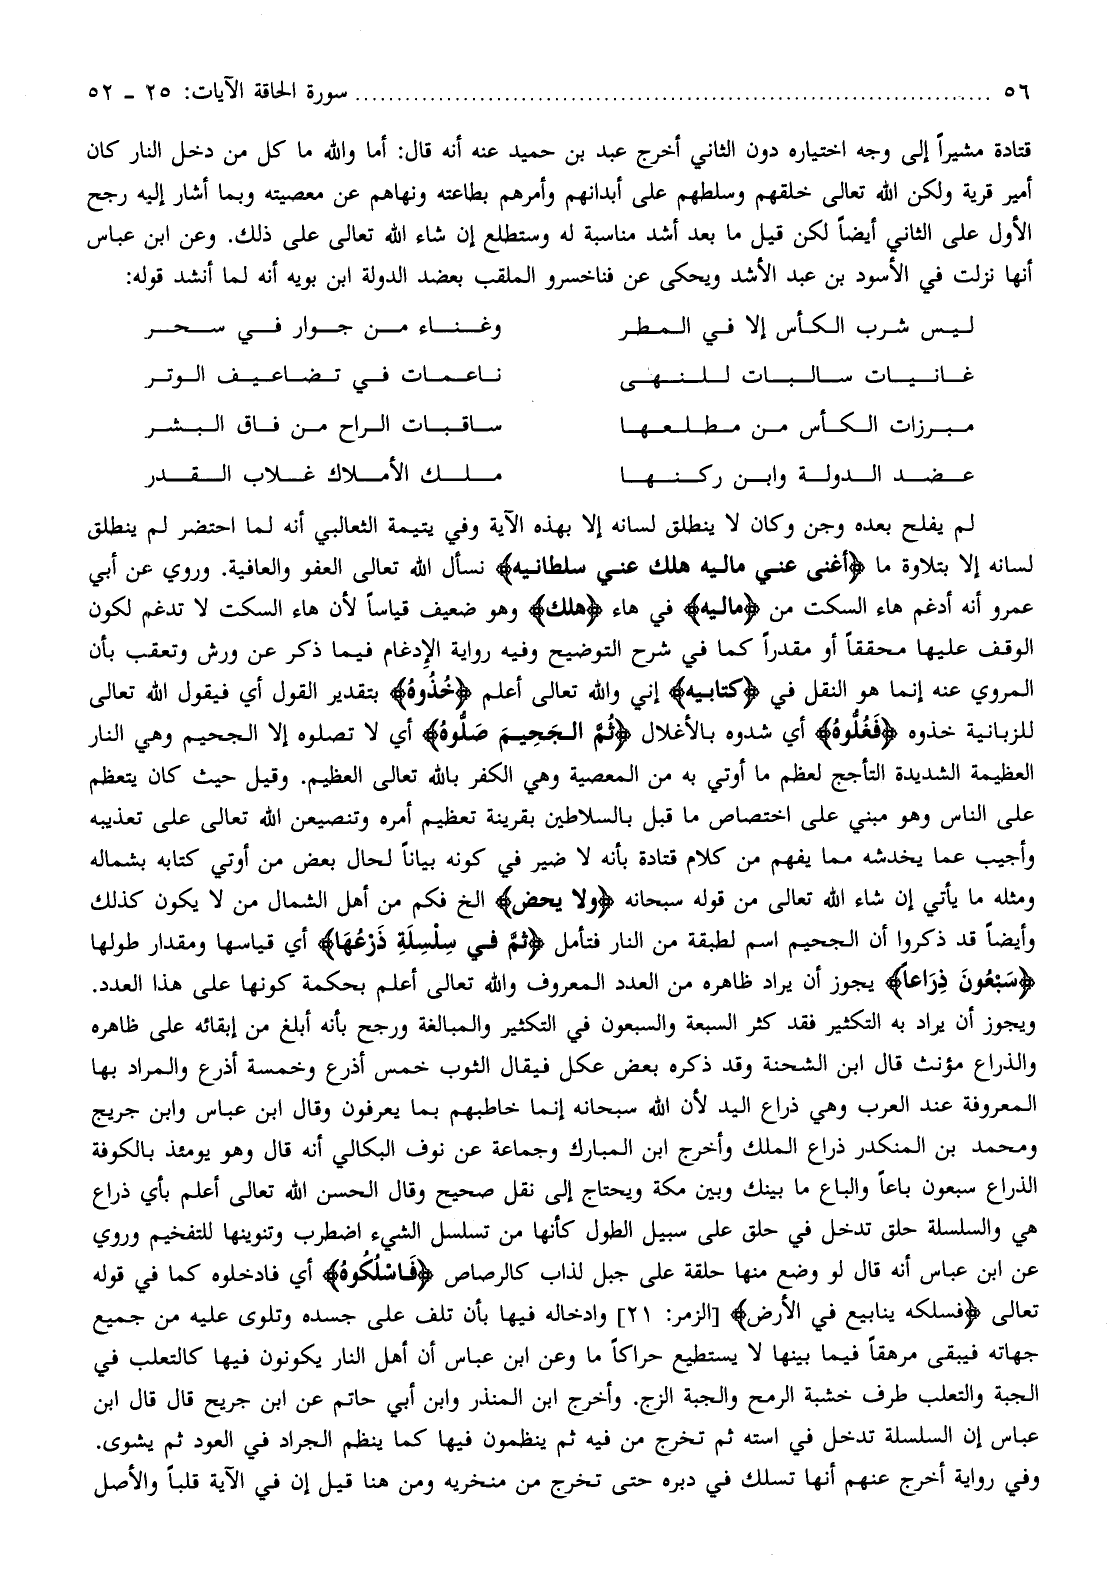 ٥٦ ........................................ سورة الحاقة الآيات: ٢٥ ـ ٥٢
قتادة مشيراً إلى وجه اختياره دون الثاني أخرج عبد بن حميد عنه أنه قال: أما والله ما كل من دخل النار كان
أمير قرية ولكن الله تعالى خلقهم وسلطهم على أبدانهم وأمرهم بطاعته ونهاهم عن معصيته وبما أشار إليه رجح
الأول على الثاني أيضاً لكن قيل ما بعد أشد مناسبة له وستطلع إن شاء الله تعالى على ذلك. وعن ابن عباس
أنها نزلت في الأسود بن عبد الأشد ويحكى عن فناخسرو الملقب بعضد الدولة ابن بويه أنه لما أنشد قوله:
ليس شرب الكأس إلا في المطر وغناء من جوار في سحر
غانيات سالبات للنهى ناعمات في تضاعيف الوتر
مبرزات الكأس من مطلعها ساقيات الراح من فاق البشر
عضد الدولة وابن ركنها ملك الأملاك غلاب القدر
لم يفلح بعده وجن وكان لا ينطلق لسانه إلا بهذه الآية وفي يتيمة الثعالبي أنه لما احتضر لم ينطلق
لسانه إلا بتلاوة ما ﴿أغنى عني ماليه هلك عني سلطانيه﴾ نسأل الله تعالى العفو والعافية. وروي عن أبي
عمرو أنه أدغم هاء السكت من ﴿ماليه﴾ في هاء ﴿هلك﴾ وهو ضعيف قياساً لأن هاء السكت لا تدغم لكون
الوقف عليها محققاً أو مقدراً كما في شرح التوضيح وفيه رواية الإدغام فيما ذكر عن ورش وتعقب بأن
المروي عنه إنما هو النقل في ﴿كتابيه﴾ إني والله تعالى أعلم ﴿خُذُوهُ﴾ بتقدير القول أي فيقول الله تعالى
للزبانية خذوه ﴿فَغُلُّوهُ﴾ أي شدوه بالأغلال ﴿ثُمَّ الجَحِيمَ صَلُّوهُ﴾ أي لا تصلوه إلا الجحيم وهي النار
العظيمة الشديدة التأجج لعظم ما أوتي به من المعصية وهي الكفر بالله تعالى العظيم. وقيل حيث كان يتعظم
على الناس وهو مبني على اختصاص ما قبل بالسلاطين بقرينة تعظيم أمره وتنصيعن الله تعالى على تعذيبه
وأجيب عما يخدشه مما يفهم من كلام قتادة بأنه لا ضير في كونه بياناً لحال بعض من أوتي كتابه بشماله
ومثله ما يأتي إن شاء الله تعالى من قوله سبحانه ﴿ولا يحض﴾ الخ فكم من أهل الشمال من لا يكون كذلك
وأيضاً قد ذكروا أن الجحيم اسم لطبقة من النار فتأمل ﴿ثمَّ في سِلْسِلَةٍ ذَرْعُهَا﴾ أي قياسها ومقدار طولها
﴿سَبْعُونَ ذِرَاعاً﴾ يجوز أن يراد ظاهره من العدد المعروف والله تعالى أعلم بحكمة كونها على هذا العدد.
ويجوز أن يراد به التكثير فقد كثر السبعة والسبعون في التكثير والمبالغة ورجح بأنه أبلغ من إبقائه على ظاهره
والذراع مؤنث قال ابن الشحنة وقد ذكره بعض عكل فيقال الثوب خمس أذرع وخمسة أذرع والمراد بها
المعروفة عند العرب وهي ذراع اليد لأن الله سبحانه إنما خاطبهم بما يعرفون وقال ابن عباس وابن جريج
ومحمد بن المنكدر ذراع الملك وأخرج ابن المبارك وجماعة عن نوف البكالي أنه قال وهو يومئذ بالكوفة
الذراع سبعون باعاً والباع ما بينك وبين مكة ويحتاج إلى نقل صحيح وقال الحسن الله تعالى أعلم بأي ذراع
هي والسلسلة حلق تدخل في حلق على سبيل الطول كأنها من تسلسل الشيء اضطرب وتنوينها للتفخيم وروي
عن ابن عباس أنه قال لو وضع منها حلقة على جبل لذاب كالرصاص ﴿فَاسْلُكُوهُ﴾ أي فادخلوه كما في قوله
تعالى ﴿فسلكه ينابيع في الأرض﴾ [الزمر: ٢١] وادخاله فيها بأن تلف على جسده وتلوى عليه من جميع
جهاته فيبقى مرهقاً فيما بينها لا يستطيع حراكاً ما وعن ابن عباس أن أهل النار يكونون فيها كالثعلب في
الجبة والثعلب طرف خشبة الرمح والجبة الزج. وأخرج ابن المنذر وابن أبي حاتم عن ابن جريح قال قال ابن
عباس إن السلسلة تدخل في استه ثم تخرج من فيه ثم ينظمون فيها كما ينظم الجراد في العود ثم يشوى.
وفي رواية أخرج عنهم أنها تسلك في دبره حتى تخرج من منخريه ومن هنا قيل إن في الآية قلباً والأصل